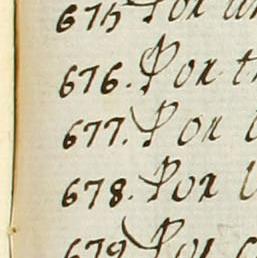 675 Por
676. Por
677. Por
678. Por
679 Por